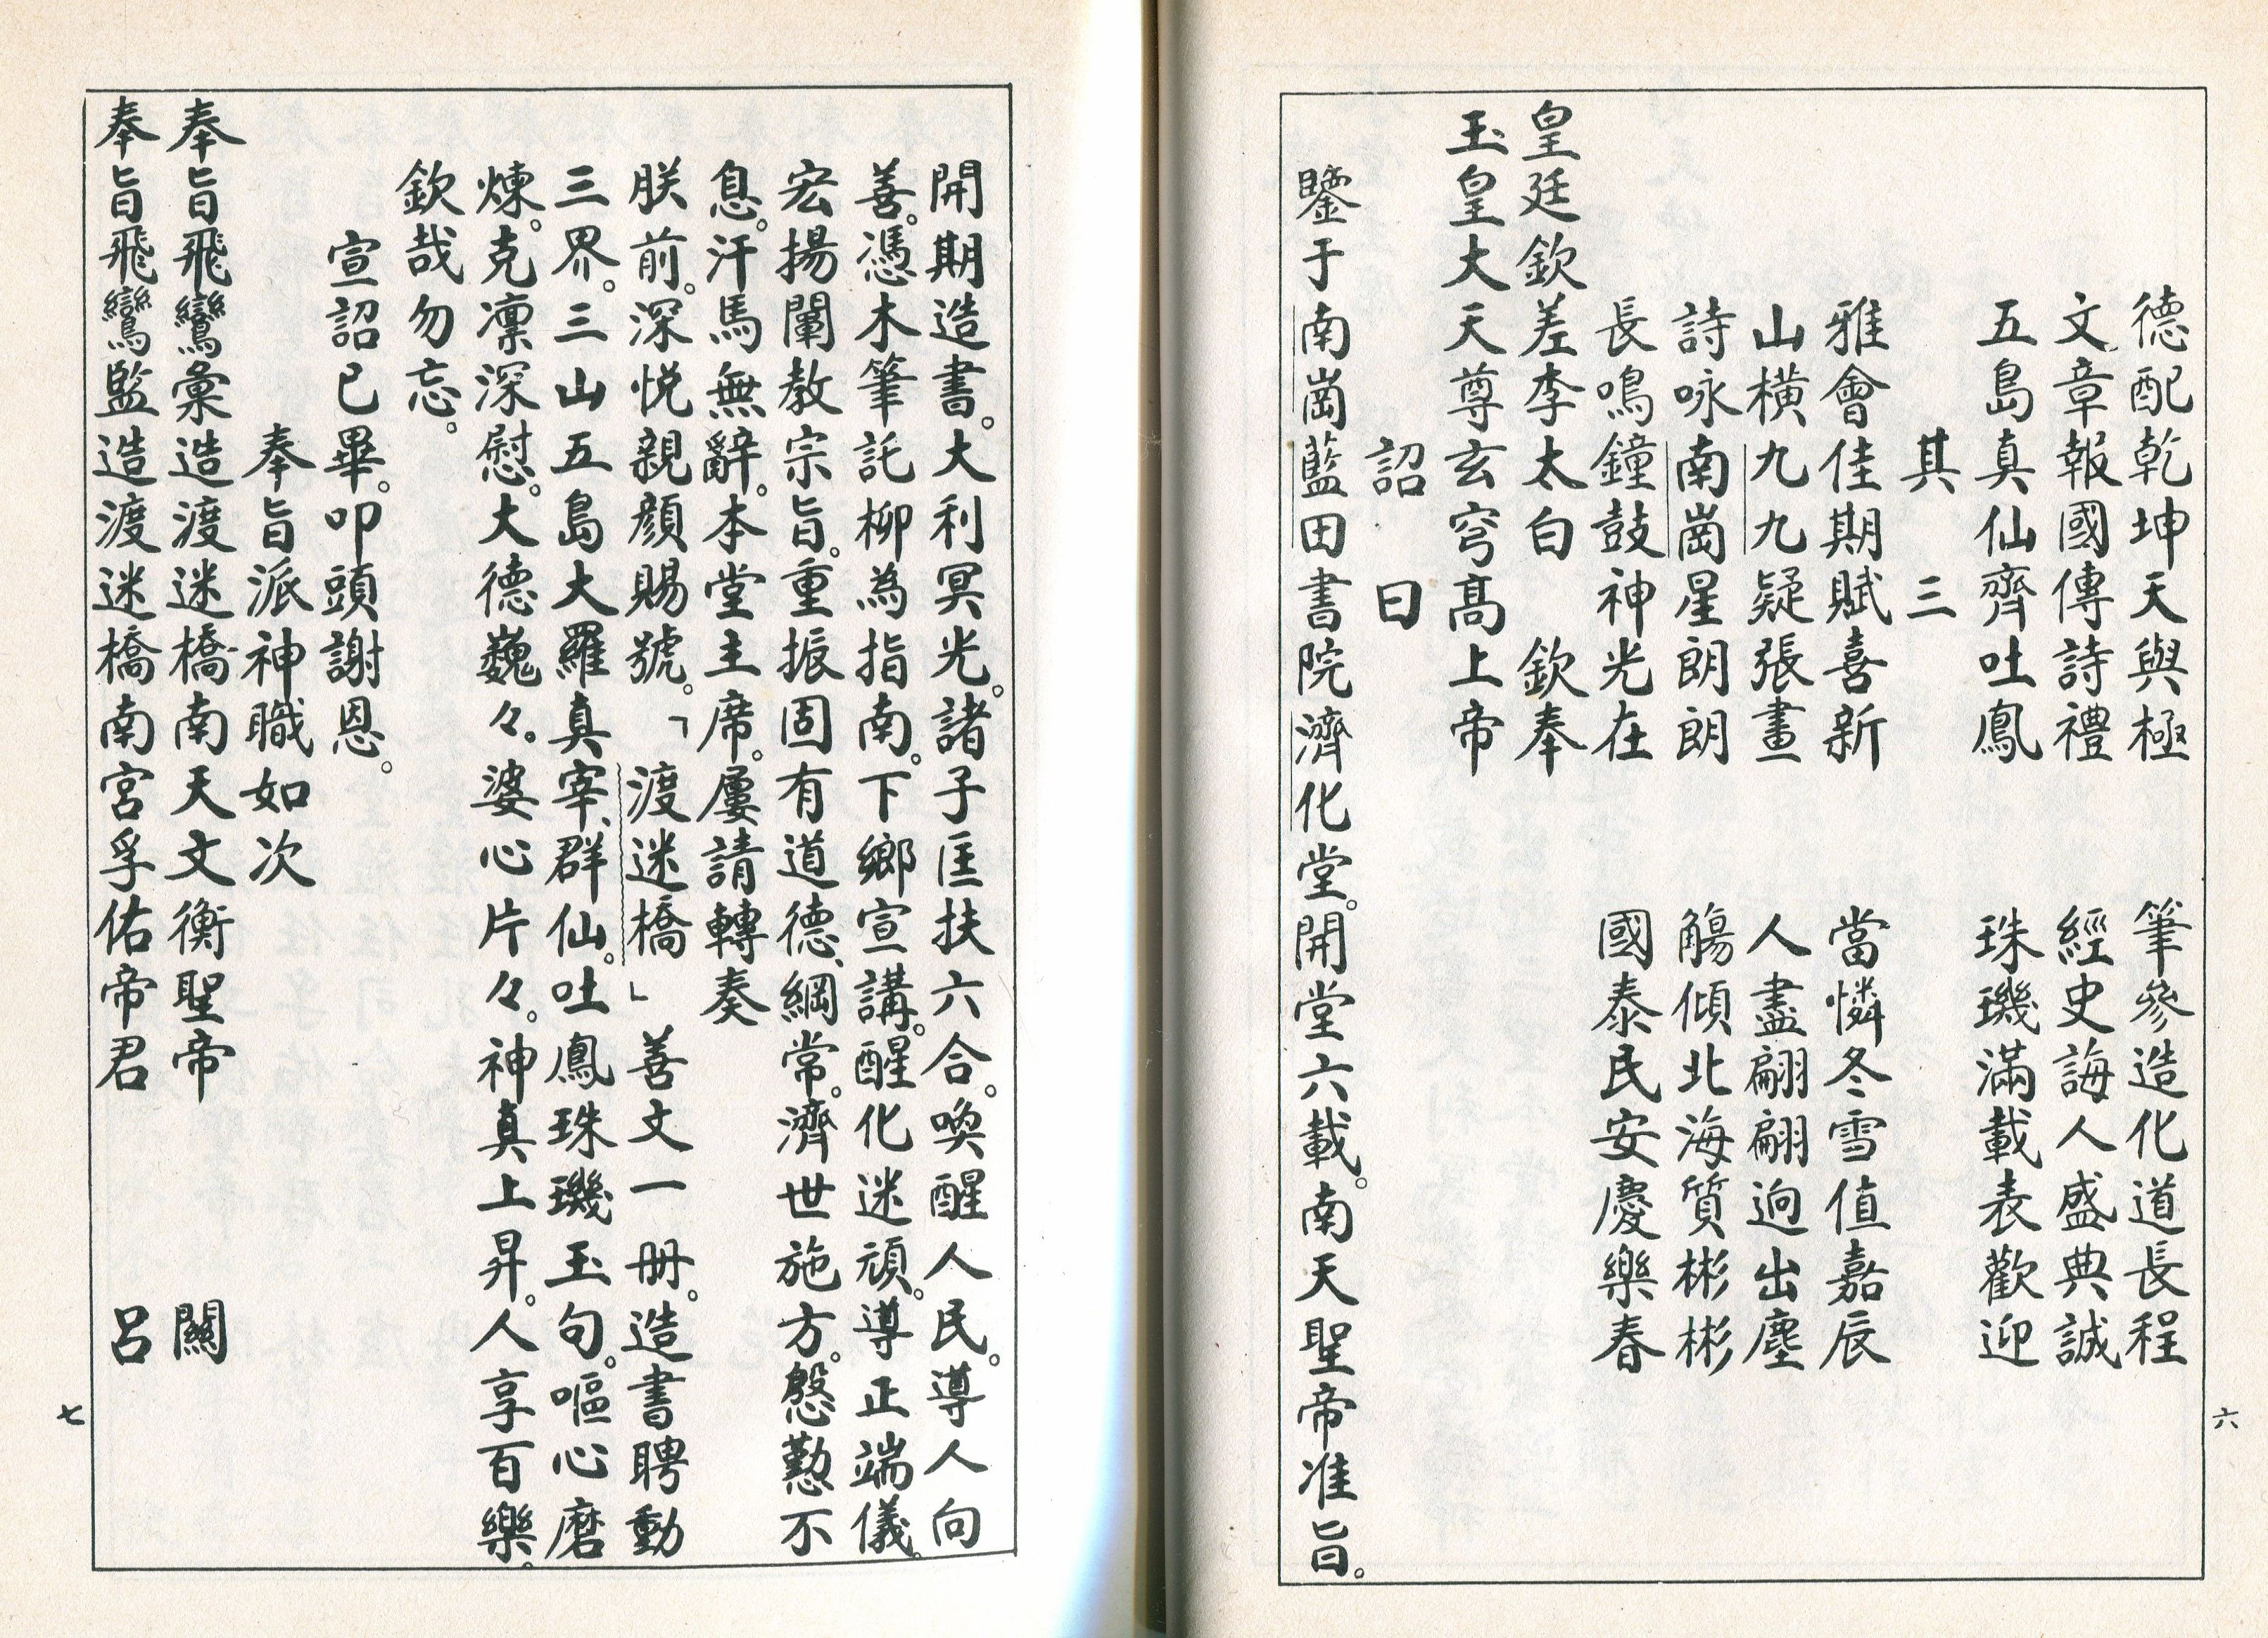 德配乾坤天與極　筆參造化道長程
文章報國傳詩禮　經史誨人盛典誠
五島真仙齊吐鳳　珠璣滿載表歡迎
其三
雅會佳期賦喜新　當憐冬雪值嘉辰
山橫九九疑張畫　人盡翩翩迥出塵
詩咏南崗星朗朗　觴傾北海質彬彬
長鳴鐘鼓神光在　國泰民安慶樂春
皇廷欽差李太白　欽奉
玉皇大天尊玄穹高上帝
詔曰
鑒于南崗藍田書院濟化堂。開堂六載。南天聖帝准旨。
六
開期造書。大利冥光。諸子匡扶六合。喚醒人民。導人向
善。憑木筆託柳為指南。下鄉宣講。醒化迷頑。導正端儀。
宏揚闡教宗旨。重振固有道德、綱常。濟世施方。慇懃不
息。汗馬無辭。本堂主席。屢請轉奏
朕前。深悅親顏賜號。「渡迷橋」善文一冊。造書聘動
三界。三山五島大羅真宰、群仙。吐鳳珠璣玉句。嘔心磨
煉。克凜深慰。大德巍々。婆心片々。神真上昇。人享百樂。
欽哉勿忘。
宣詔已畢。叩頭謝恩。
奉旨派神職如次
奉旨飛鸞彙造渡迷橋南天文衡聖帝　關
奉旨飛鸞監造渡迷橋南宮孚佑帝君　呂
七